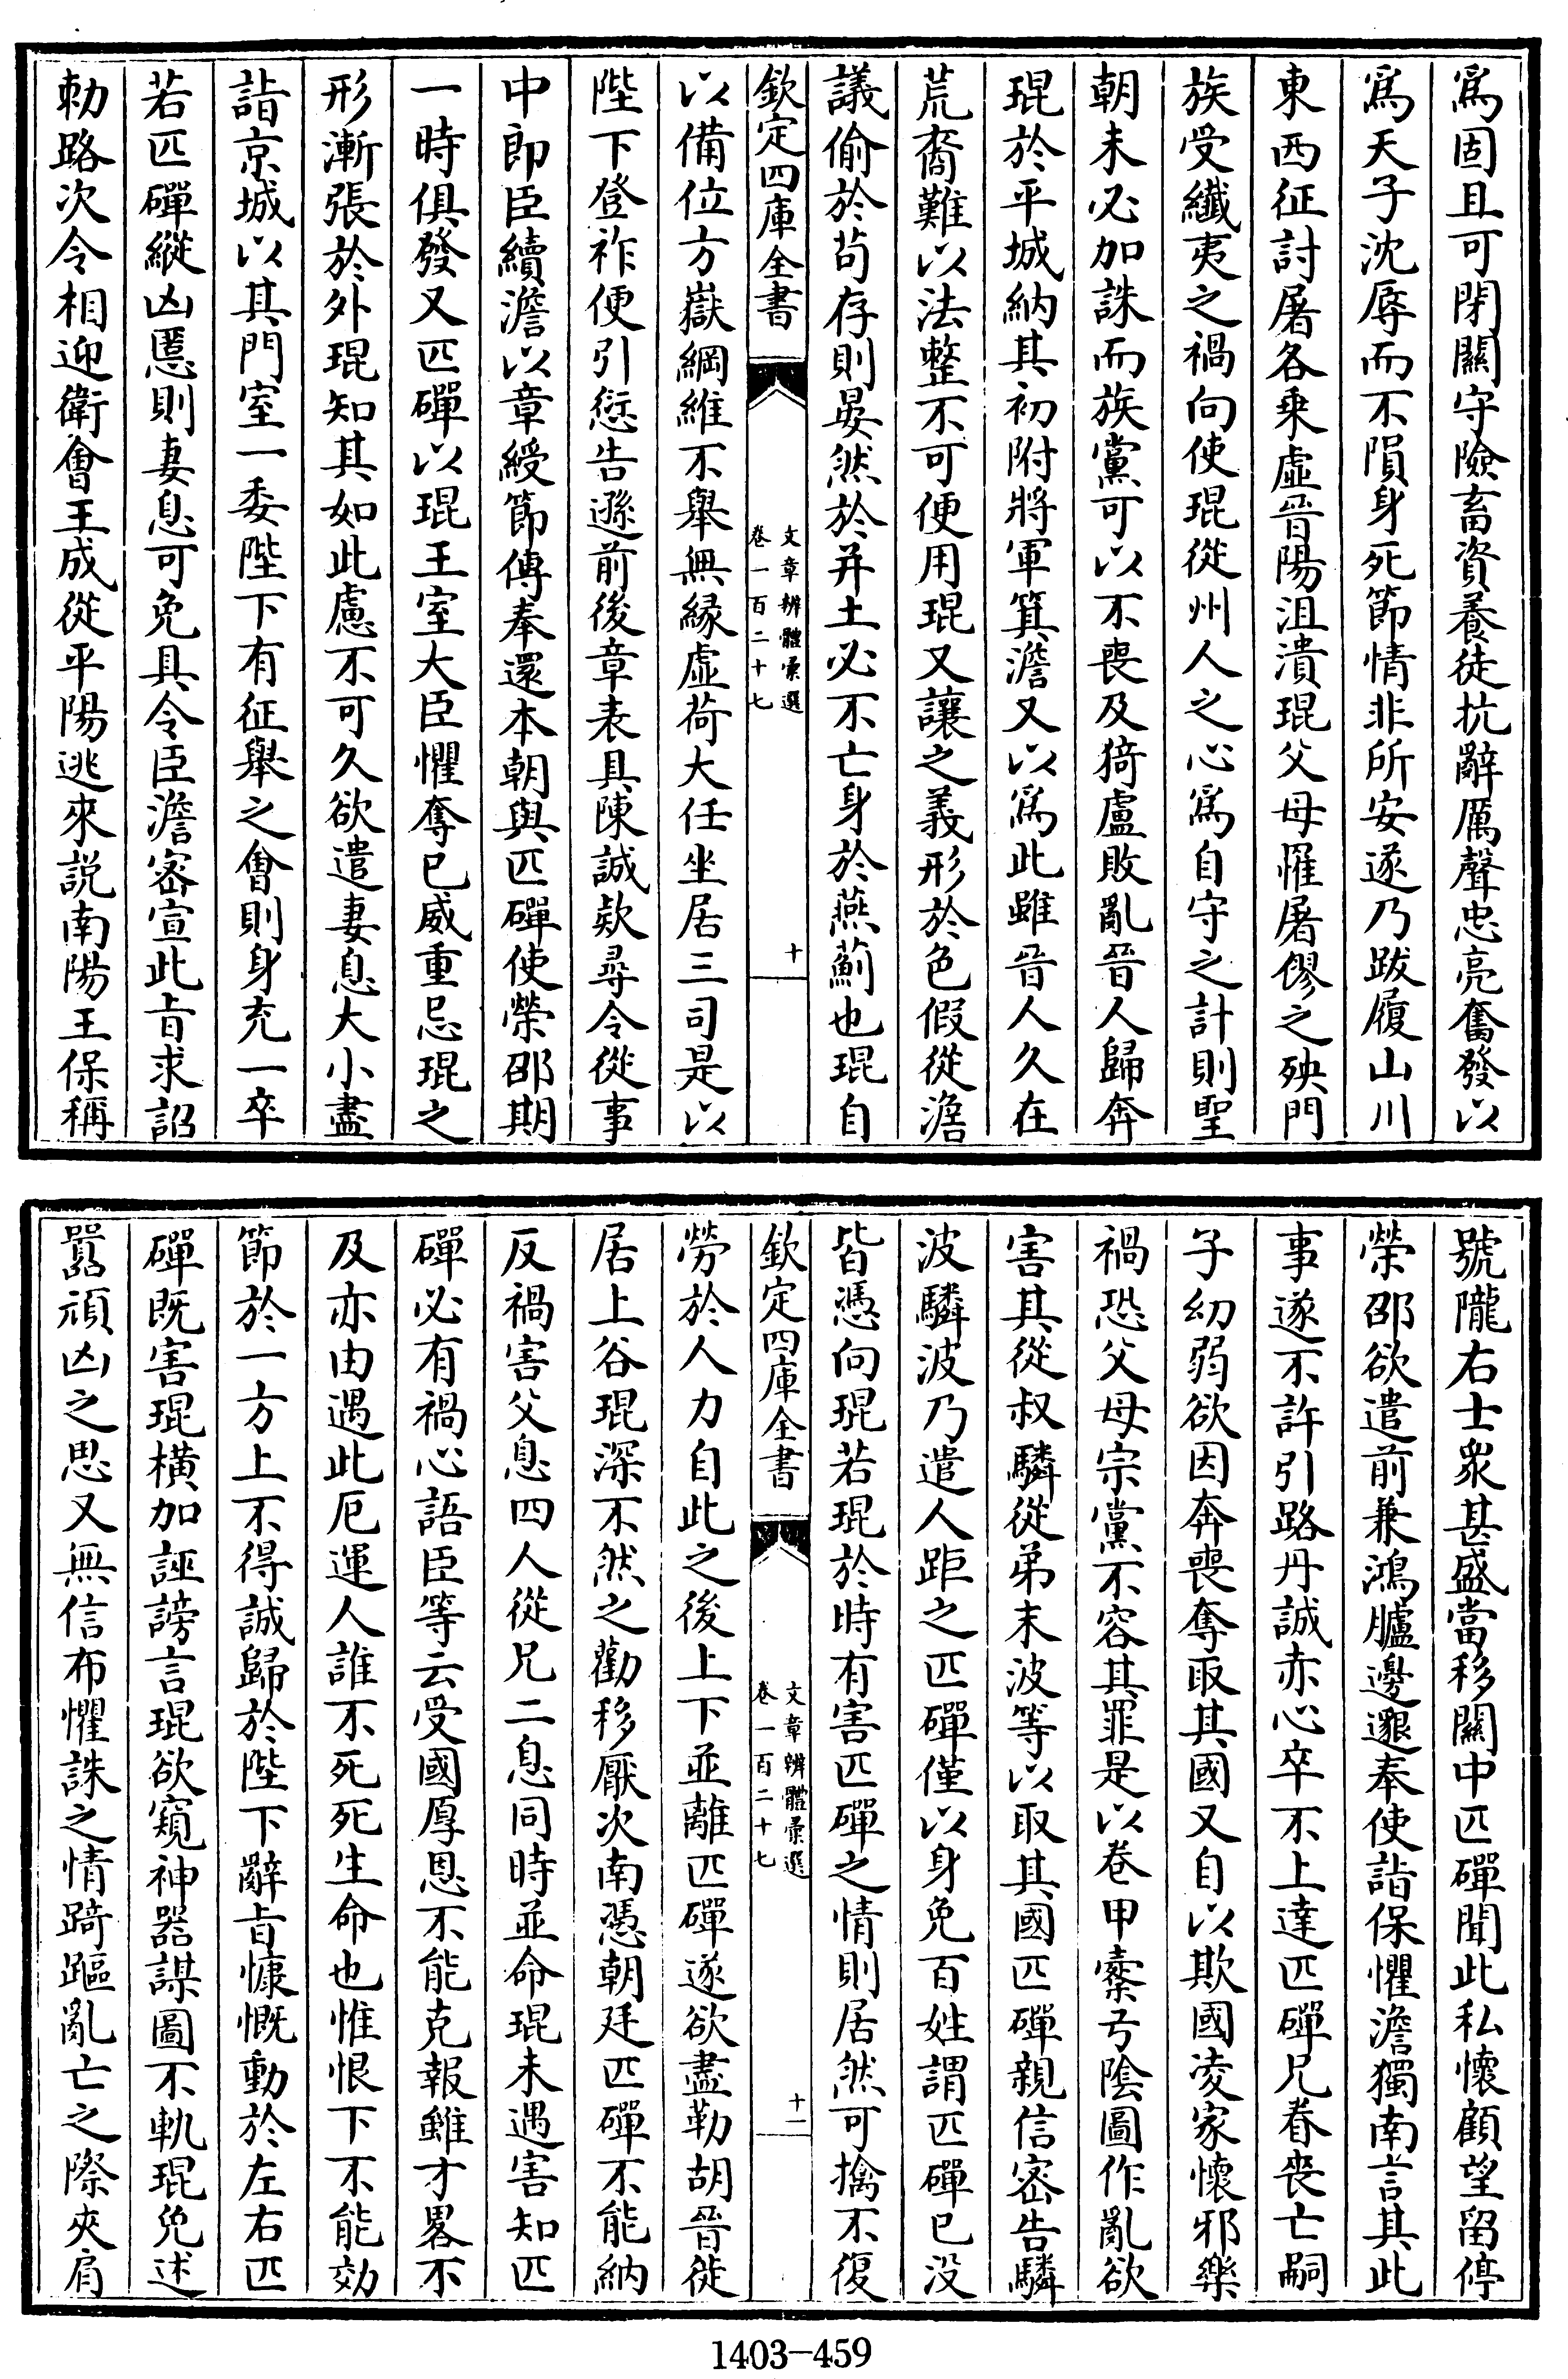 爲固且可閉關守險畜資養徒抗辭厲聲忠亮奮發以
爲天子沈辱而不隕身死節情非所安遂乃跋履山川
東西征討屠各乗虛晉陽沮潰琨父母罹屠僇之殃門
族受殲夷之禍向使琨從州人之心爲自守之計則聖
朝未必加誅而族黨可以不喪及猗盧敗亂晉人歸奔
琨於平城納其初附將軍箕澹又以爲此雖晉人久在
荒裔難以法整不可便用琨又讓之義形於色假從澹
議偷於茍存則晏然於并土必不亡身於燕薊也琨自
欽定四庫全書
文章辨體彙選
卷一百二十七
十
以備位方嶽綱維不舉無緣虛荷大任坐居三司是以
陛下登祚便引愆告遜前後章表具陳誠欵尋令從事
中郎臣續澹以章綬節傳奉還本朝與匹磾使榮邵期
一時俱發又匹磾以琨王室大臣懼奪已威重忌琨之
形漸張於外琨知其如此慮不可久欲遣妻息大小盡
詣京城以其門室一委陛下有征舉之會則身充一卒
若匹磾縱凶慝則妻息可免具令臣澹宻宣此旨求詔
勅路次令相迎衛會王成從平陽逃來説南陽王保稱
號隴右士衆甚盛當移關中匹磾聞此私懷顧望留停
榮邵欲遣前兼鴻臚邊邈奉使詣保懼澹獨南言其此
事遂不許引路丹誠赤心卒不上達匹磾兄眷喪亡嗣
子幼弱欲因奔喪奪取其國又自以欺國凌家懷邪樂
禍恐父母宗黨不容其罪是以卷甲櫜弓陰圖作亂欲
害其從叔驎從弟末波等以取其國匹磾親信宻告驎
波驎波乃遣人距之匹磾僅以身免百姓謂匹磾已没
皆慿向琨若琨於時有害匹磾之情則居然可擒不復
欽定四庫全書
文章辨體彙選
卷一百二十七
十一
勞於人力自此之後上下並離匹磾遂欲盡勒胡晉徙
居上谷琨深不然之勸移厭次南慿朝廷匹磾不能納
反禍害父息四人從兄二息同時並命琨未遇害知匹
磾必有禍心語臣等云受國厚恩不能克報雖才畧不
及亦由遇此厄運人誰不死死生命也惟恨下不能効
節於一方上不得誠歸於陛下辭旨慷慨動於左右匹
磾既害琨横加誣謗言琨欲窺神器謀圖不軌琨免述
嚚頑凶之思又無信布懼誅之情踦䧢亂亡之際夾肩